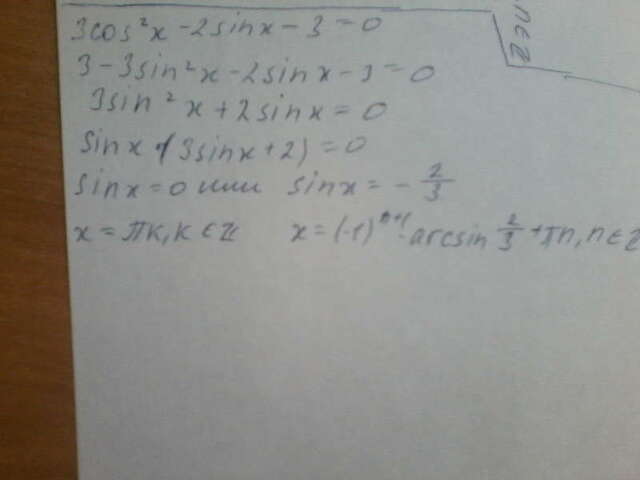 3cos²x - 2sinx - 3 = 0
n ∈ Z
3 - 3sin²x - 2sinx - 3 = 0
3sin²x + 2sinx = 0
sinx (3sinx + 2) = 0
sinx = 0 или sinx = - 2/3
x = πk, k ∈ Z x = (-1)ⁿ⁺¹ · arcsin 2/3 + πn, n ∈ Z